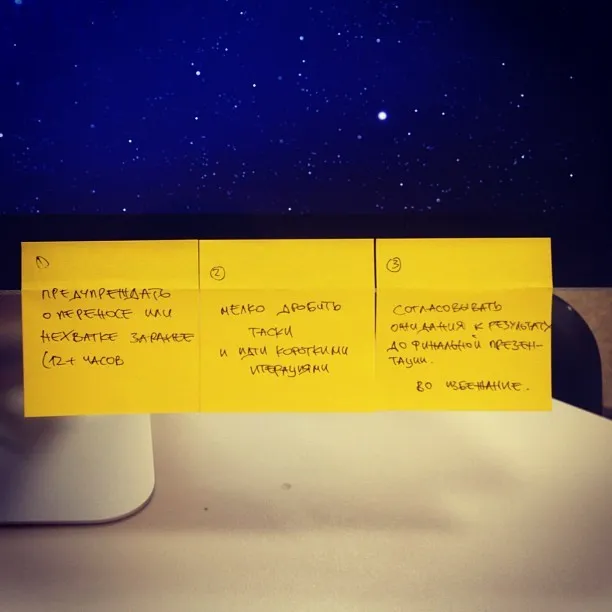 1
ПРЕДУПРЕЖДАТЬ
О ПЕРЕНОСЕ ИЛИ
НЕХВАТКЕ ЗАРАНЕЕ
(12+ ЧАСОВ
2
МЕЛКО ДРОБИТЬ
ТАСКИ
И ИДТИ КОРОТКИМИ
ИТЕРАЦИЯМИ
3
СОГЛАСОВЫВАТЬ
ОЖИДАНИЯ К РЕЗУЛЬТАТУ
ДО ФИНАЛЬНОЙ ПРЕЗЕН-
ТАЦИИ.
ВО ИЗБЕЖАНИЕ.